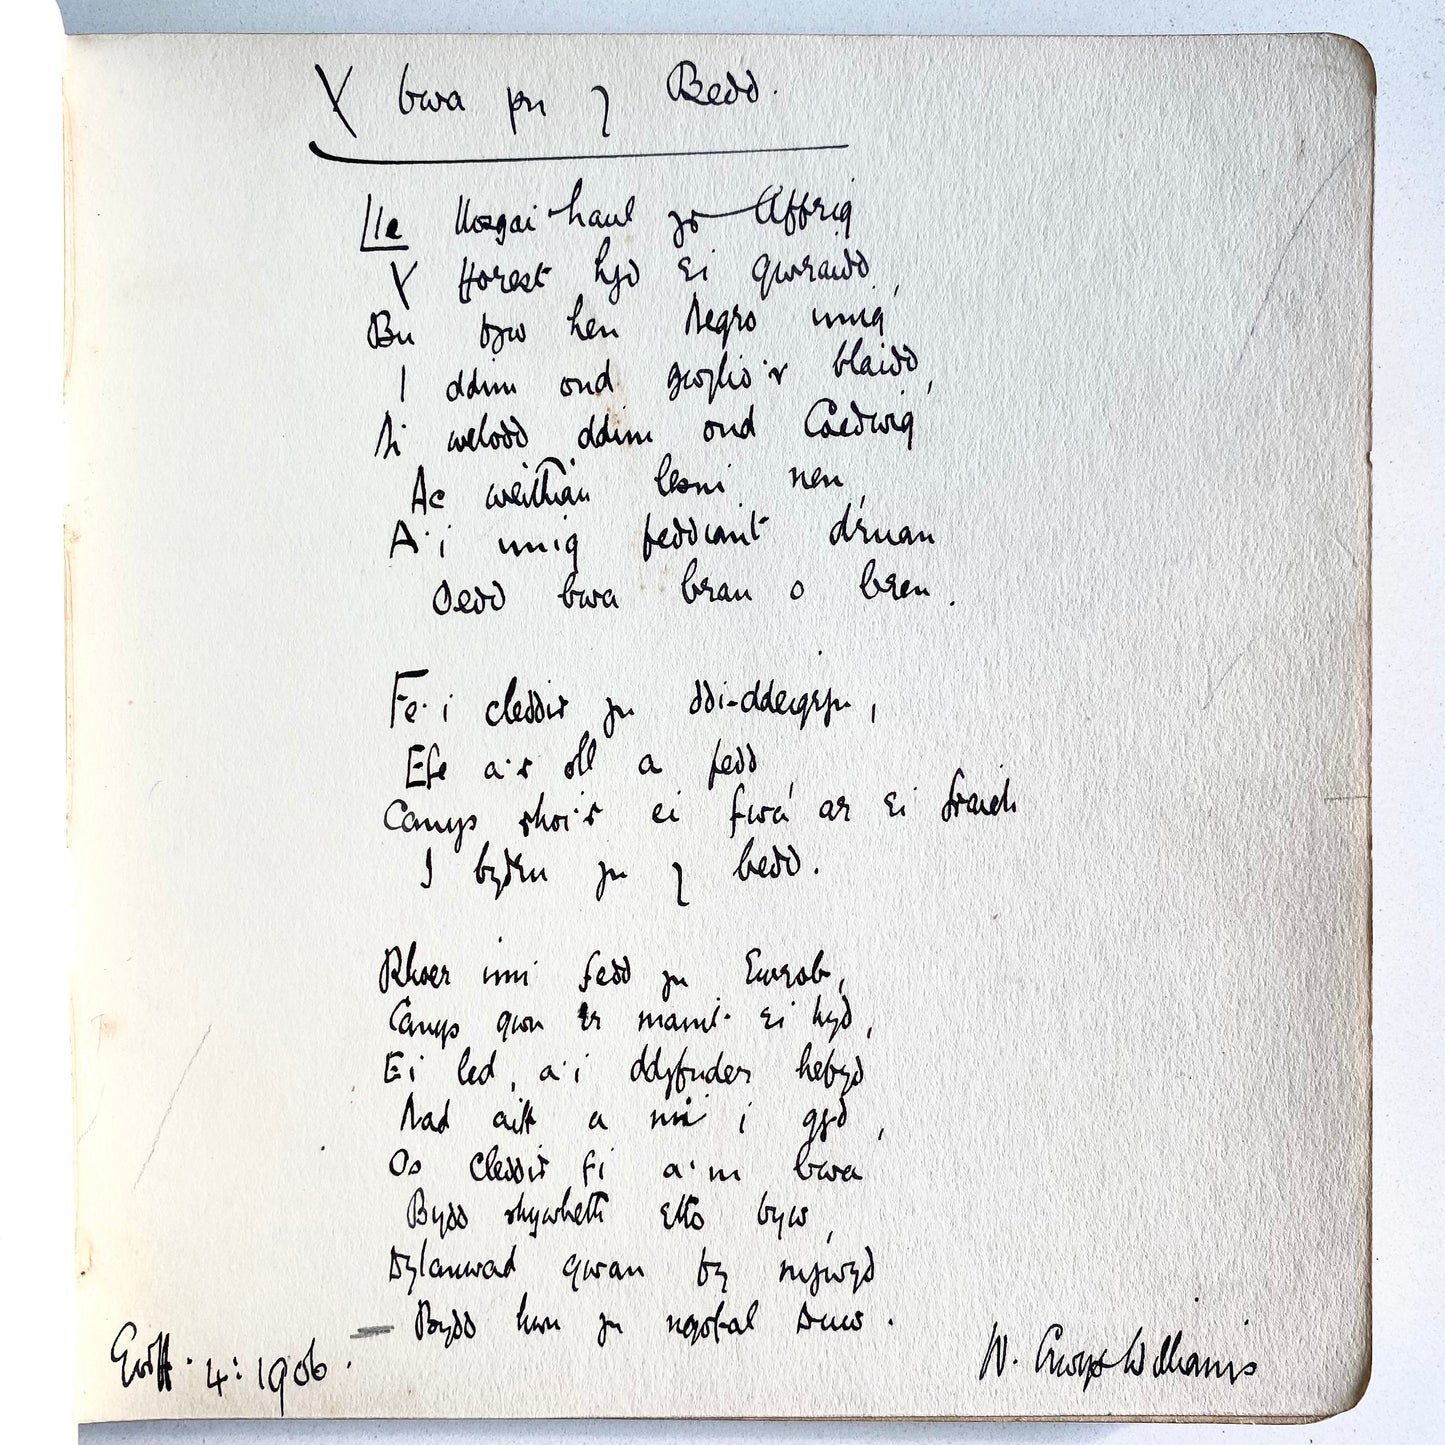 Y bwa yn y Bedd.
Lle llosgai haul yr Affrig
Y fforest hyd ei gwraidd,
Bu byw hen Negro unig
I ddim ond gwylio'r blaidd,
Ni welodd ddim ond Coedwig
Ac weithian lesni nen,
A'i unig feddiant druan
Oedd bwa bran o bren.
Fe'i cleddir yn ddi-ddeigryn,
Efe a'r oll a fedd,
Canys rhoi'r ei fwa ar ei fraich
I bydru yn y bedd.
Rhoer imi fedd yn Ewrob,
Canys gwn er maint ei hyd,
Ei led, a'i ddyfnder hefyd
Nad aiff a mi i gyd,
Os cleddir fi a'm bwa
Bydd rhywbeth etto byw,
Dylanwad gwan fy mywyd
Bydd hwn yn ngofal Duw.
4: 1906.
W. Crwys Williams